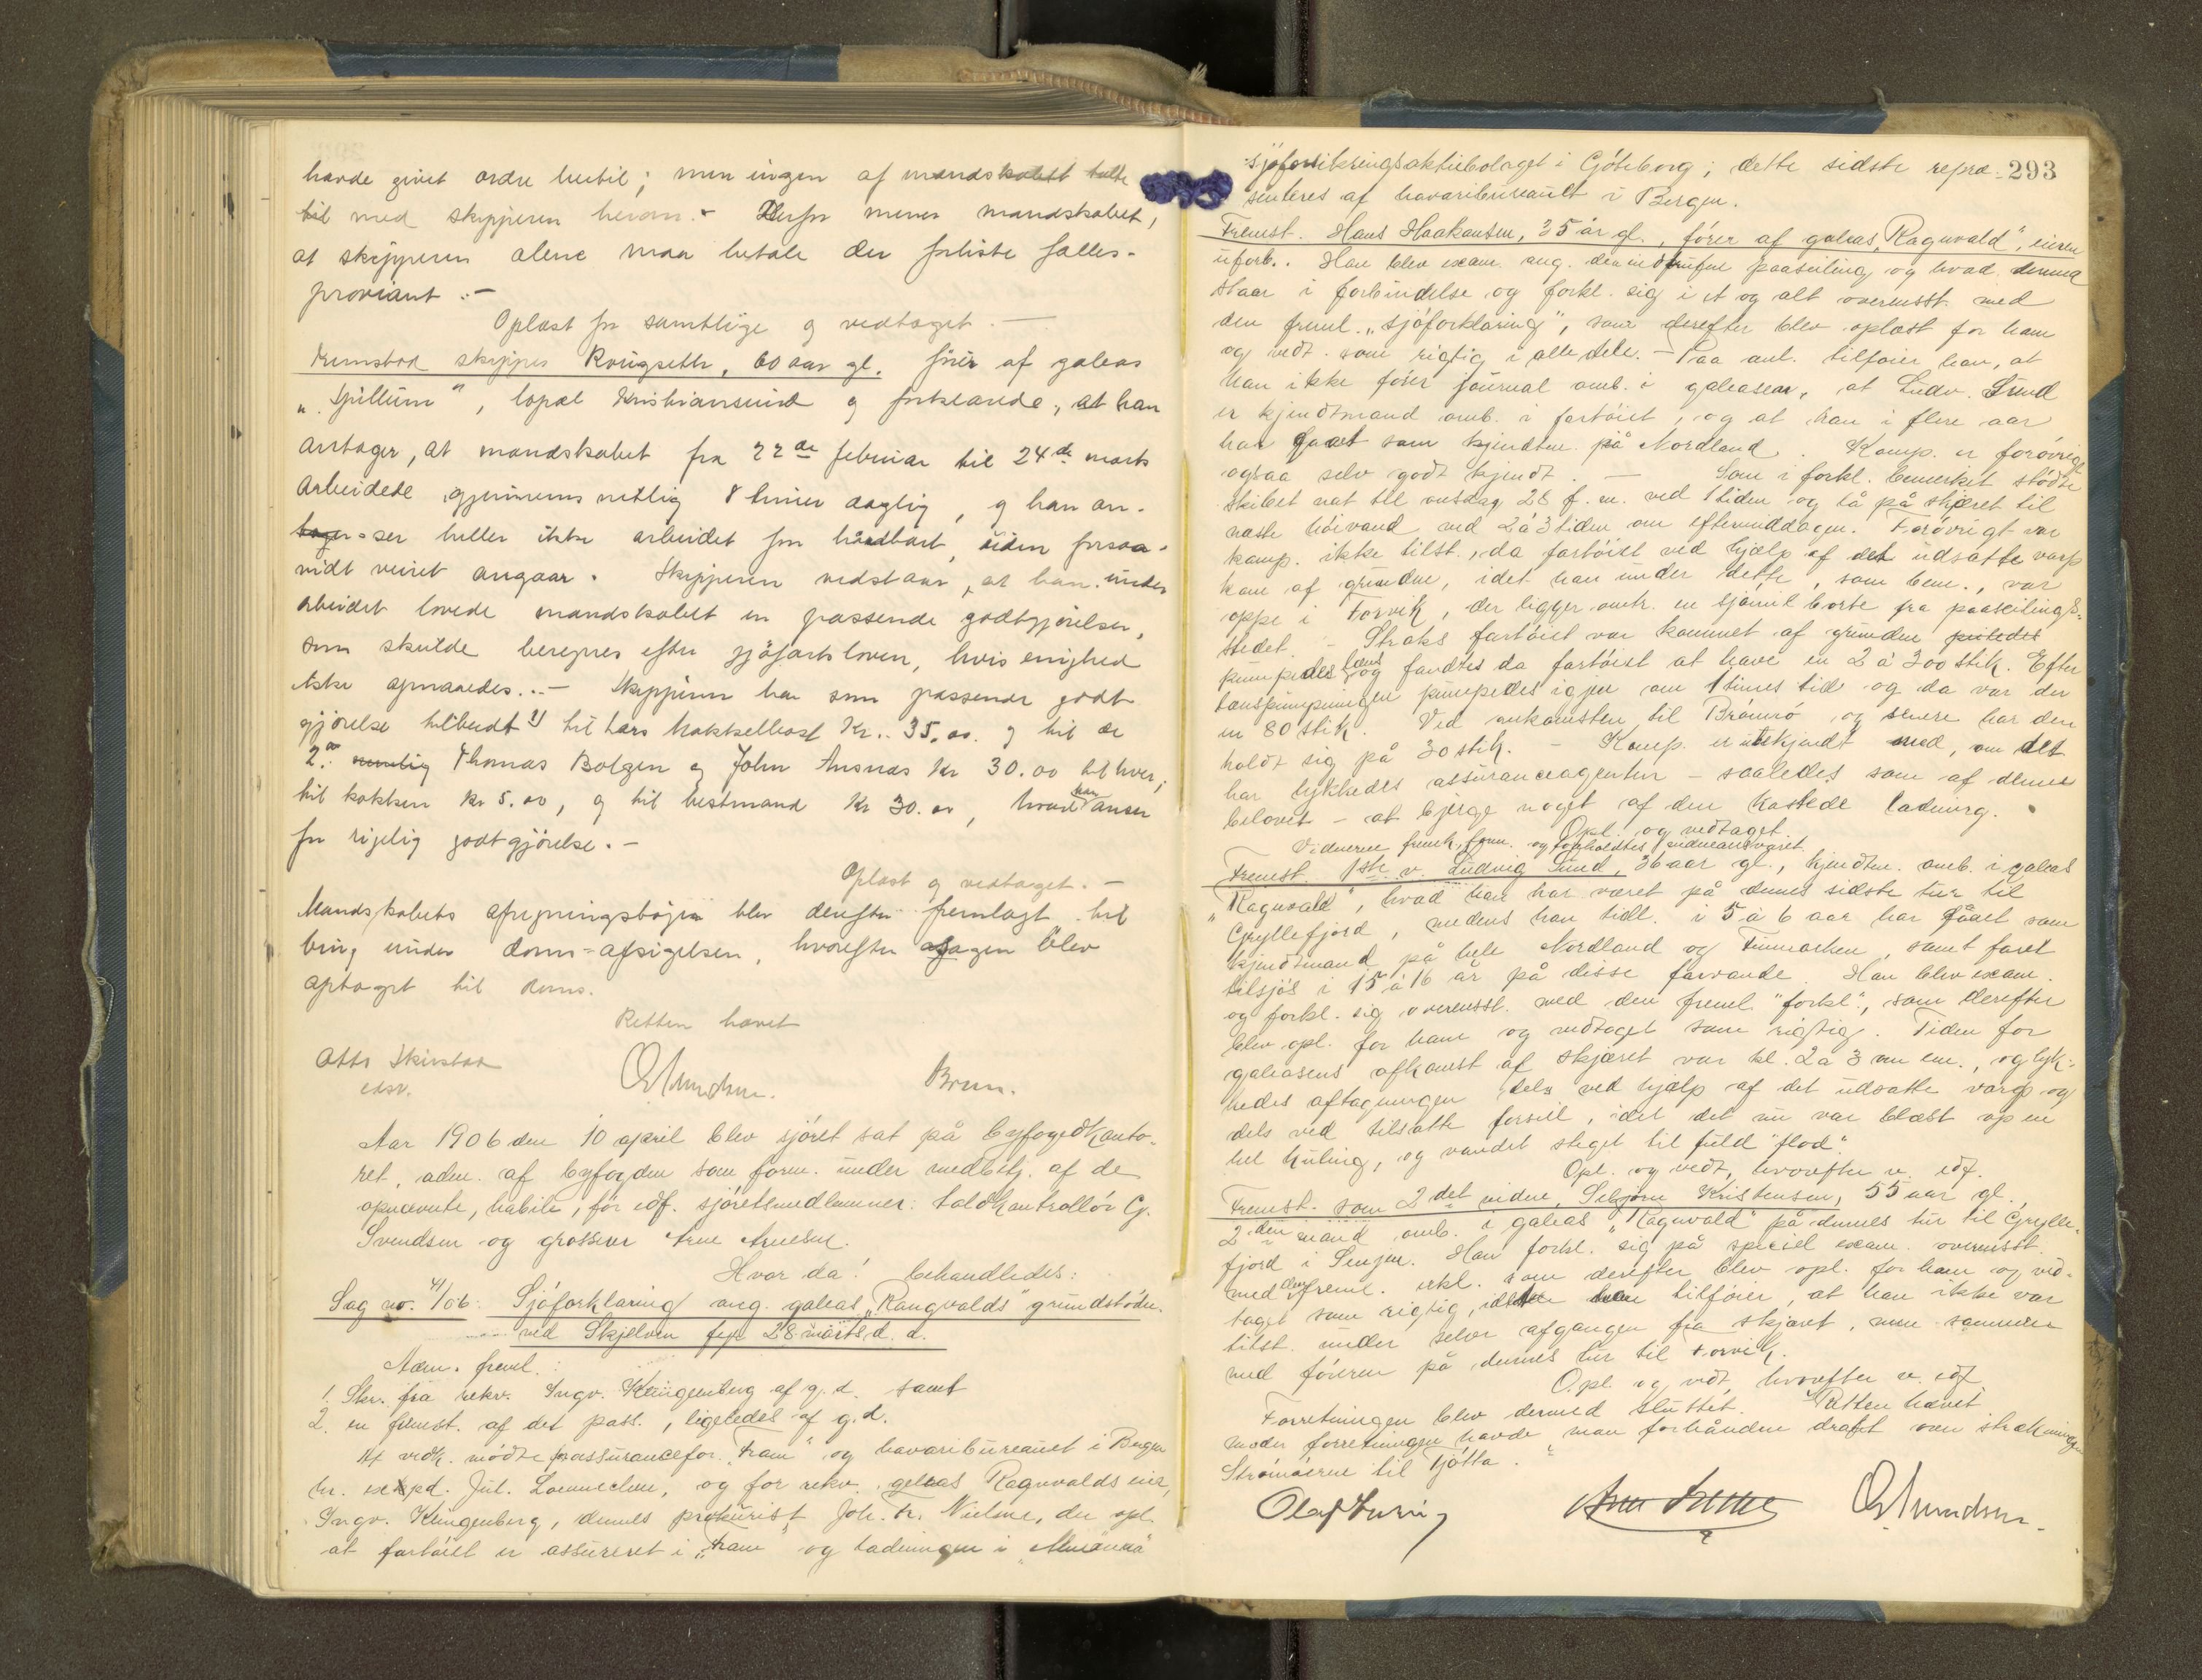 havde givet ordre hertil; men ingen af mandskabet talte
til med skipperen herom. - Derfor mener mandskabet,
at skipperen alene maa betale den forliste fælles-
proviant. -
Oplæst for samtlige og vedtaget. -
Fremstod skipper Ringseth, 60 aar gl. fører af galeas
"Spillum", lopæl Kristiansund og forklarede, at han
antager, at mandskabet fra 22de februar til 24de marts
arbeidede gjennemsnitlig 8 timer daglig, og han an-
ser heller ikke arbeidet for haardbart, uden forsaa-
vidt veiret angaar. Skipperen vedstaar, at han under
arbeidet lovede mandskabet en passende godtgjørelse,
som skulde beregnes efter sjøfartsloven, hvis enighed
ikke opnaaedes. - Skipperen har som passende godt
gjørelse tilbudt til Lars Kr. 35,00. og til de
2de Thomas Bolgen og John Ansnæs Kr 30.00 til hver;
til kokken Kr 5.00, og til bestmand Kr 30.00, hvad han anser
for rigelig godtgjørelse. -
Oplæst og vedtaget. -
Mandskabets afregningsbøger blev derefter fremlagt til
brug under doms-afsigelsen, hvorefter sagen blev
optaget til doms.
Retten hævet
Otto Skirstad
edsv.
Brun.
Aar 1906 den 10 april blev sjøret sat på byfogedkonto-
ret, adm. af byfogden som form. under medbetj. af de
opnævnte, habile, før edf. sjøretsmedlemmer: toldkontrollør G.
Svendsen og grosserer Arne Arnesen.
Hvor da! behandledes:
Sag no. 41/06: Sjøforklaring ang. galeas "Rangvalds" grundstødn.
ved Skjelven fyr 28 marts d. a.
Adm. freml.:
1. Skr. fra rekv. Ingv. Klingenberg af g. d. samt
2. en fremst. af det pass., ligeledes af g. d.
Af vedk. mødte for assurancefor. "Fram" og havaribureauet i Bergen
hr. expd. Jul. Loennechen, og for rekv. galeas Ragnvalds eier,
Ingv. Klingenberg, dennes prokurist Joh. Fr. Nielsen, der opl.
at fartøiet er assureret i "Fram" og ladningen i
293
sjøforsikringsaktiebolaget i Göteborg; dette sidste repræ-
senteres af havaribureauet i Bergen.
Fremst. Hans Haakansen, 35 år gl., fører af galeas "Ragnvald", eieren
uforb.. Han blev exam. ang. den indtrufne paaseiling og hvad dermed
staar i forbindelse og forkl. sig i et og alt overensst. med
den freml. "sjøforklaring", som derefter blev oplæst for ham
og vedt. som rigtig i alle dele. - Paa anl. tilføier han, at
han ikke fører journal omb. i galeasen, at Ludv. Lund
er kjendtmand omb. i fartøiet, og at han i flere aar
har faret som kjendtm. på Nordland. Komp. er forøvrigt
ogsaa selv godt kjendt. - Som i forkl. bemerket stødte
skibet nat til onsdag 28 f. m. ved 1 tiden og lå på skjæret til
næste høivand ved 2 à 3 tiden om eftermiddagen. Forøvrigt var
komp. ikke tilst., da fartøiet ved hjælp af det udsatte varp
kom af grunden, idet han under dette, som bem., var
oppe i Forvik, der ligger omtr. en sjømil borte fra paaseilings-
stedet. - Straks fartøiet var kommet af grunden
pumpedes læns og fandtes da fartøiet at have en 2 à 300 stik. Efter
lænspumpningen pumpedes igjen om 1 times tid og da var der
en 80 stik. Ved ankomsten til Brønnø og senere har den
holdt sig på 30 stik. - Komp. er ubekjendt med, om det
har lykkedes assuranceagenten - saaledes som af denne
belovet - at bjerge noget af den kastede ladning.
Opl. og vedtaget.
Vidnerne fremk., form. og foreholdtes vidneansvaret.
Fremst. 1ste v. Ludvig Lund, 36 aar gl., kjendtm. omb. i galeas
"Ragnvald", hvad han har været på dennes sidste tur til
Gryllefjord, medens han tidl. i 5 à 6 aar har faret som
kjendtmand på hele Nordland og Finmarken, samt faret
tilsjøs i 15 à 16 år på disse farvande. Han blev exam.
og forkl. sig overensst. med den freml. "forkl.", som derefter
blev opl. for ham og vedtaget som rigtig. Tiden for
galeasens afkomst af skjæret var kl. 2 à 3 om em., og lyk-
kedes aftagningen dels ved hjælp af det udsatte varp og
dels ved tilsatte forseil, idet det nu var blæst op en
hel kuling, og vandet steget til fuld "flod".
Opl. og vedt., hvorefter v. edf.
Fremst. som 2det vidne, Selgjørn Kristensen, 55 aar gl.
2den mand omb. i galeas "Ragnvald" på dennes tur til Grylle-
fjord i Senjen. Han forkl. sig på speciel exam. overensst.
med den freml. erkl. som derefter blev opl. for ham og ved-
taget som rigtig, idet han tilføier, at han ikke var
tilst. under selve afgangen fra skjæret, men sammen
med føreren på dennes tur til Forvik.
Opl. og vedt., hvorefter v. edf.
Forretningen blev dermed sluttet. Retten hævet
under forretningen havde man forhånden draft over strækningen
Strømøerne til Tjøtta.